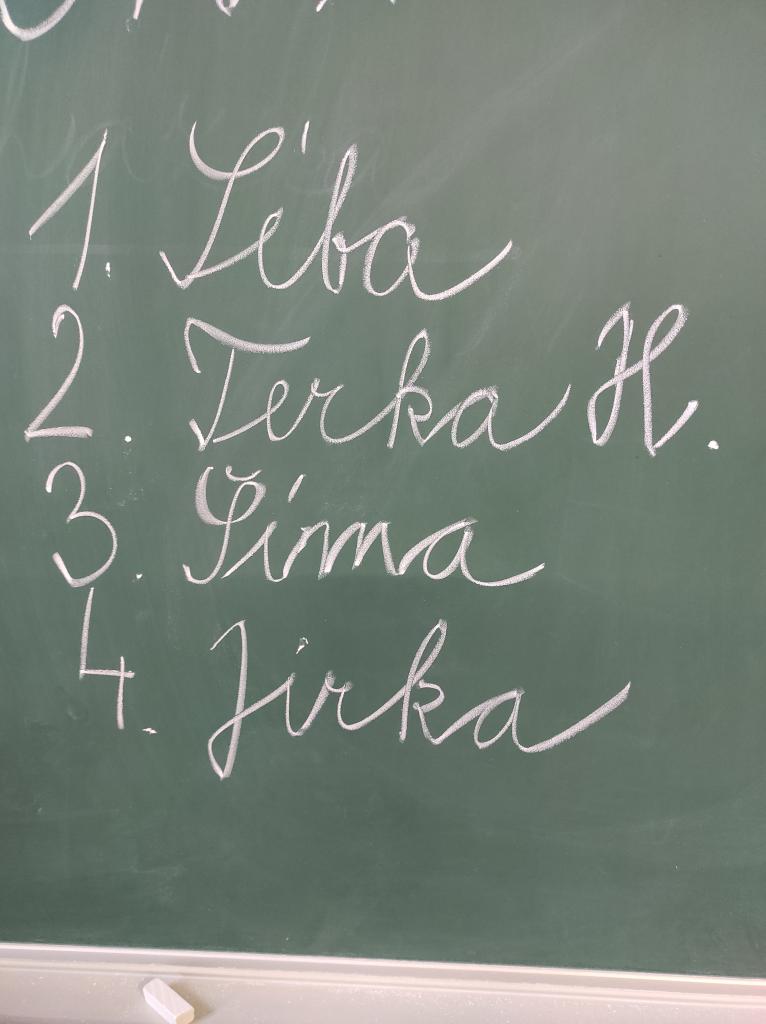 1. Séba
2. Terka H.
3. Šíma
4. Jirka